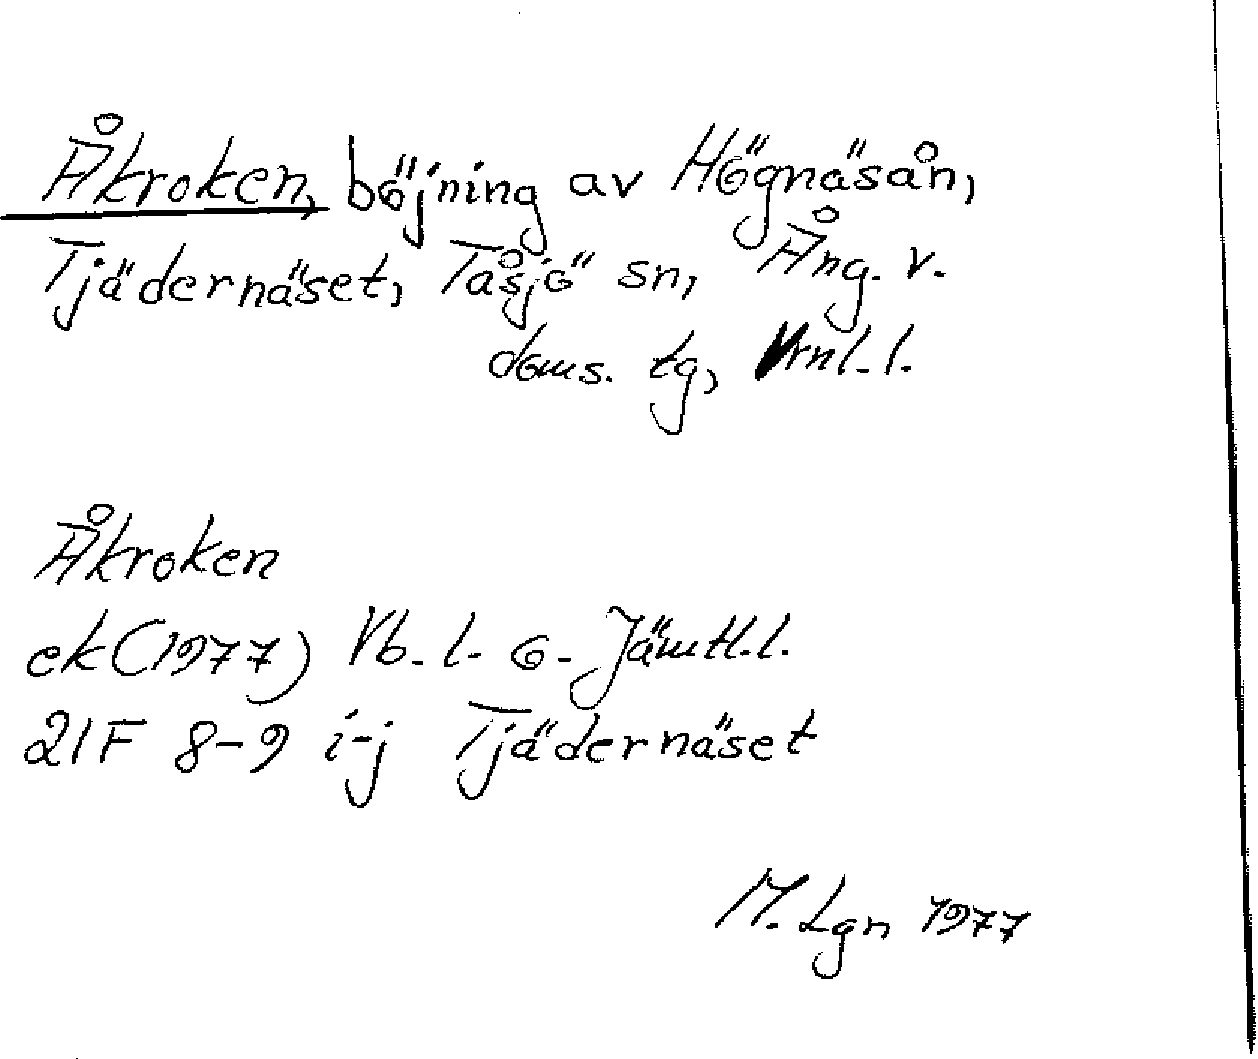 Åkroken, böjning av Högnäsån,
Tjädernäset, Tåsjö sn, Ång. v.
doms. tg, Vrnl. l.
Åkroken
ek (1977) Vb. l. o. Jämtl. l.
21F 8-9 i-j Tjädernäset
M. Lgn 1977